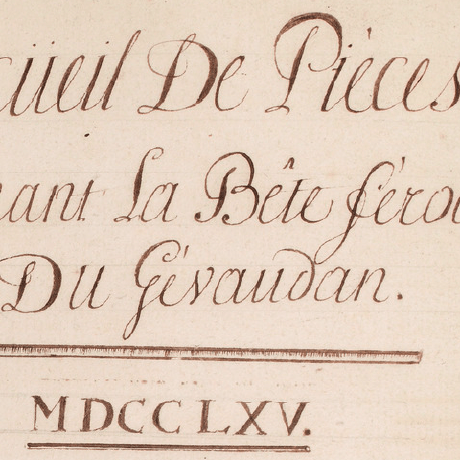 cüeil De Pièces
nant La Bête féroc
Du Gévaudan.
MDCCLXV.